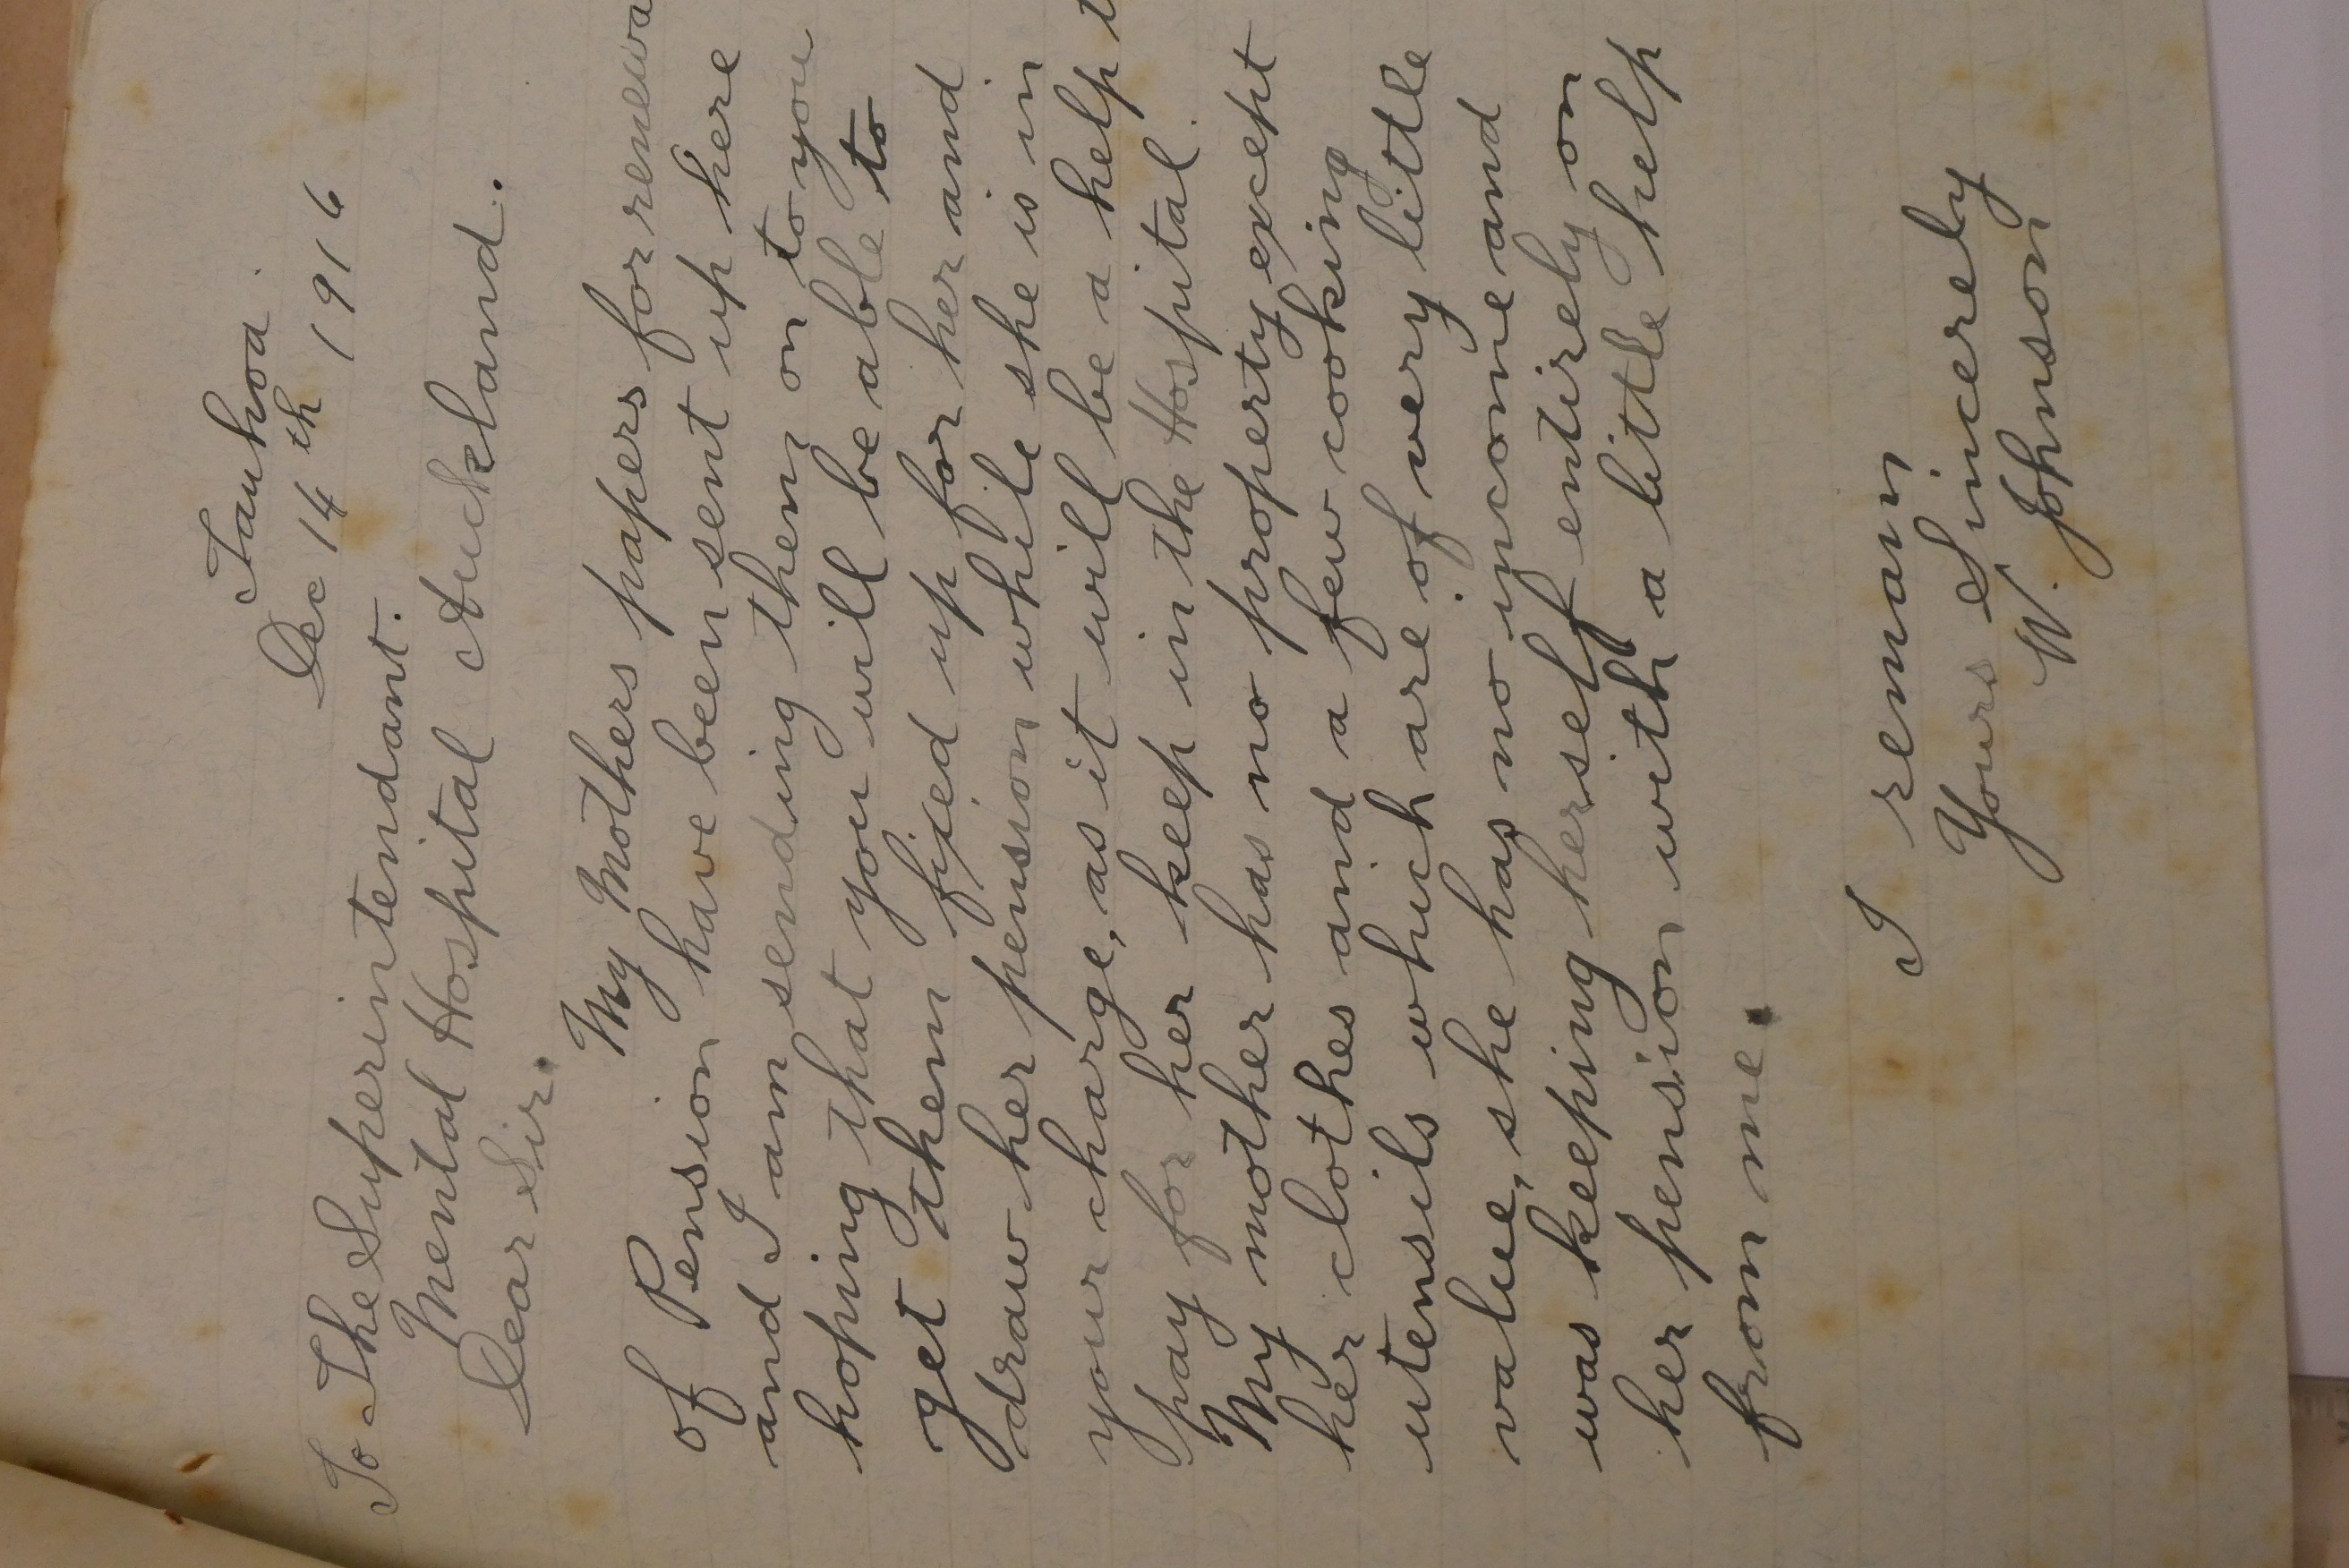 Tauhoa.
Dec 14th 1916
To The Superintendant.
Mental Hospital Auckland.
Dear Sir.
My Mothers papers for renewa
of Pension have been sent up here
and I am sending them on to you
hoping that you will be able to
get them fixed up for her and
draw her pension while she is in
your charge, as it will be a help t
pay for her keep in the Hospital.
My mother has no property except
her clothes and a few cooking
utensils which are of very little
value, she has no income and
was keeping herself entirely on
her pension with a little help
from me.
I remain
Yours Sincereby
W. Johnson